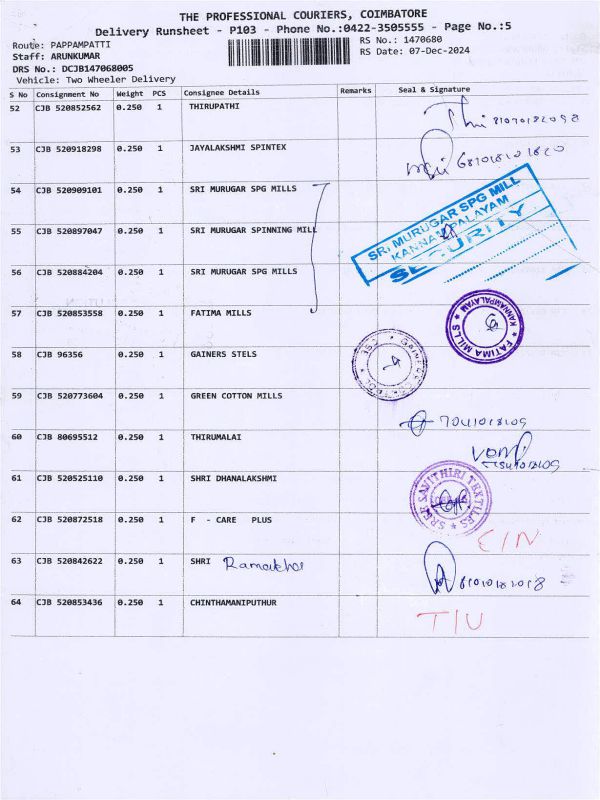 THE PROFESSIONAL COURIERS, COIMBATORE
Delivery Runsheet - P103 - Phone No.:0422-3505555 - Page No.:5
Route: PAPPAMPATTI
RS No.: 1470680
Staff: ARUNKUMAR
RS Date: 07-Dec-2024
DRS No.: DCJB147068005
Vehicle: Two Wheeler Delivery
S No Consignment No Weight PCS Consignee Details Remarks Seal & Signature
52 CJB 520852562 0.250 1 THIRUPATHI
53 CJB 520918298 0.250 1 JAYALAKSHMI SPINTEX
54 CJB 520909101 0.250 1 SRI MURUGAR SPG MILLS
SRI MURUGAR SPG MILL
KANNAMPALAYAM
SECURITY
55 CJB 520897047 0.250 1 SRI MURUGAR SPINNING MILL
56 CJB 520884204 0.250 1 SRI MURUGAR SPG MILLS
57 CJB 520853558 0.250 1 FATIMA MILLS
FATIMA MILLS * KANNAMPALAYAM *
58 CJB 96356 0.250 1 GAINERS STELS
59 CJB 520773604 0.250 1 GREEN COTTON MILLS
60 CJB 80695512 0.250 1 THIRUMALAI
61 CJB 520525110 0.250 1 SHRI DHANALAKSHMI
SREE SAVITHIRI TEXTILES *
62 CJB 520872518 0.250 1 F - CARE PLUS
E/N
63 CJB 520842622 0.250 1 SHRI
64 CJB 520853436 0.250 1 CHINTHAMANIPUTHUR
T/U